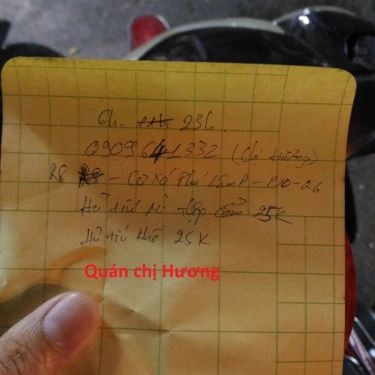 6h - 23h.
0909641332 (Chị Hường)
R8 - Cư Xá Phú Lâm D - P10 - Q6
Hủ tiếu Mì - 25K
Hủ tiếu khô 25K
Quán chị Hương